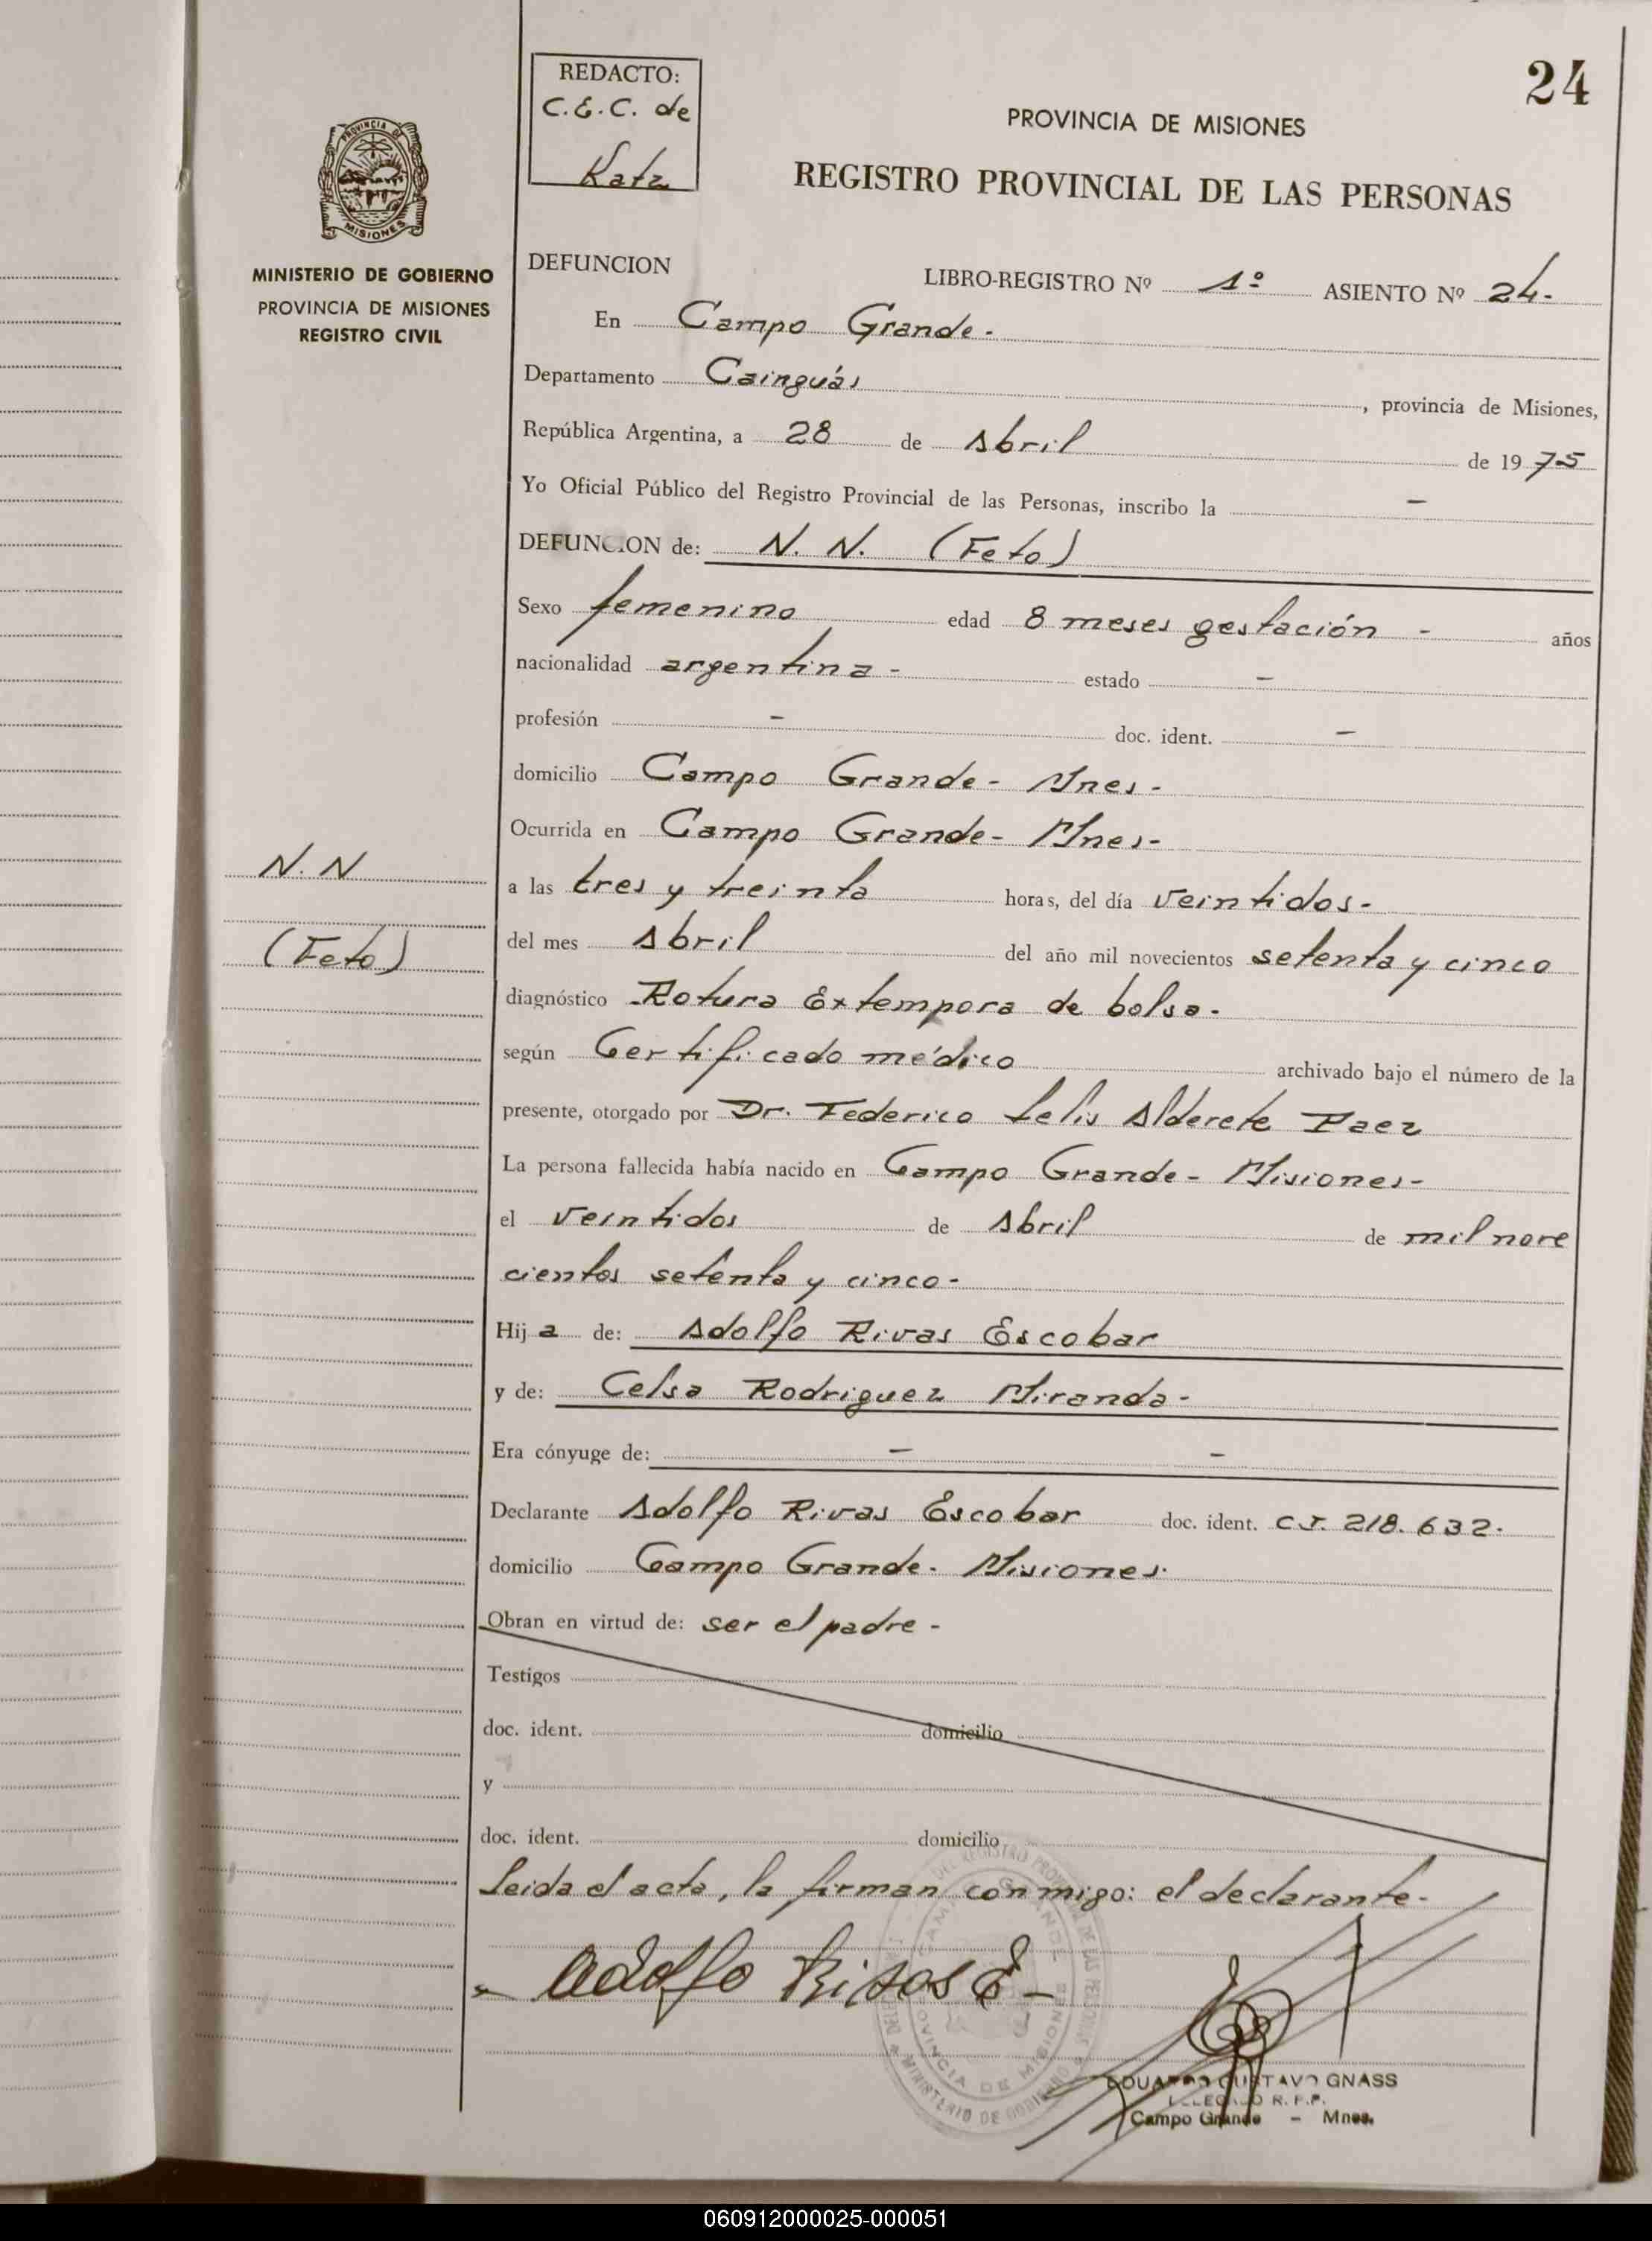 24
REDACTO:
C.E.C. de
Katz
PROVINCIA DE MISIONES
REGISTRO PROVINCIAL DE LAS PERSONAS
PROVINCIA DE
MISIONES
MINISTERIO DE GOBIERNO
PROVINCIA DE MISIONES
REGISTRO CIVIL
DEFUNCION LIBRO-REGISTRO Nº 1º ASIENTO Nº 24.
En Campo Grande.
Departamento Cainguás, provincia de Misiones,
República Argentina, a 28 de Abril de 1975
Yo Oficial Público del Registro Provincial de las Personas, inscribo la -
DEFUNCION de: N. N. (Feto)
Sexo femenino edad 8 meses gestación - años
nacionalidad argentina - estado -
profesión - doc. ident. -
domicilio Campo Grande - Mnes -
Ocurrida en Campo Grande - Mnes -
N.N
a las tres y treinta horas, del día veintidos -
(Feto)
del mes Abril del año mil novecientos setenta y cinco
diagnóstico Rotura Extempora de bolsa -
según Certificado médico archivado bajo el número de la
presente, otorgado por Dr. Federico Lelis Alderete Paez
La persona fallecida había nacido en Campo Grande - Misiones -
el veintidos de Abril de mil nove
cientos setenta y cinco -
Hija de: Adolfo Rivas Escobar
y de: Celsa Rodriguez Miranda -
Era cónyuge de: - -
Declarante Adolfo Rivas Escobar doc. ident. C.I. 218.632.
domicilio Campo Grande - Misiones.
Obran en virtud de: ser el padre -
Testigos
doc. ident. domicilio
y
doc. ident. domicilio
Leida el acta, la firman conmigo: el declarante -
Adolfo Rivas E -
MINISTERIO DE GOBIERNO
PROVINCIA DE MISIONES
EDUARDO GUSTAVO GNASS
DELEGADO R. P. P.
Campo Grande - Mnes.
060912000025-000051